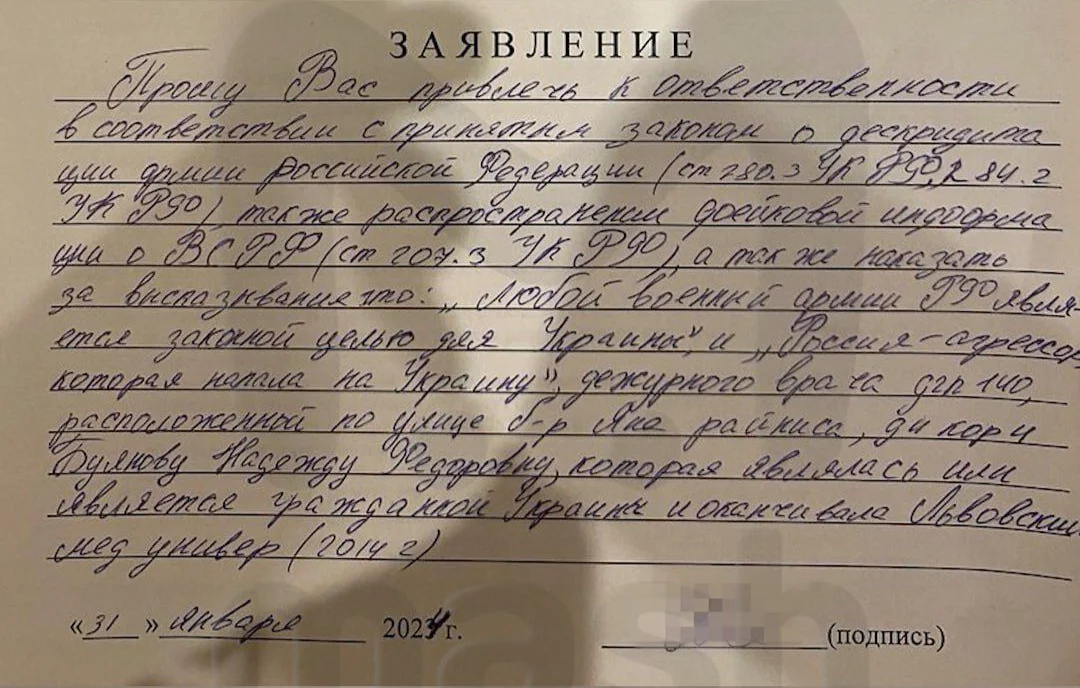 ЗАЯВЛЕНИЕ
Прошу Вас привлечь к ответственности
в соответствии с принятым законом о дескридита
ции армии Российской Федерации (ст 280.3 УК РФ, 284.2
УК РФ) также распространении фейковой информа
ции о ВС РФ (ст 207.3 УК РФ), а так же наказать
за высказывание что: „Любой военный армии РФ явля-
ется законной целью для Украины", и „Россия-агрессор,
которая напала на Украину", дежурного врача дгп 140,
расположенной по улице б-р Яна райниса, д и кор 4
Буянову Надежду Федоровну, которая являлась или
является гражданкой Украины и оканчивала Львовский
мед универ (2014 г)
«31» января 2024 г.
(подпись)
mash